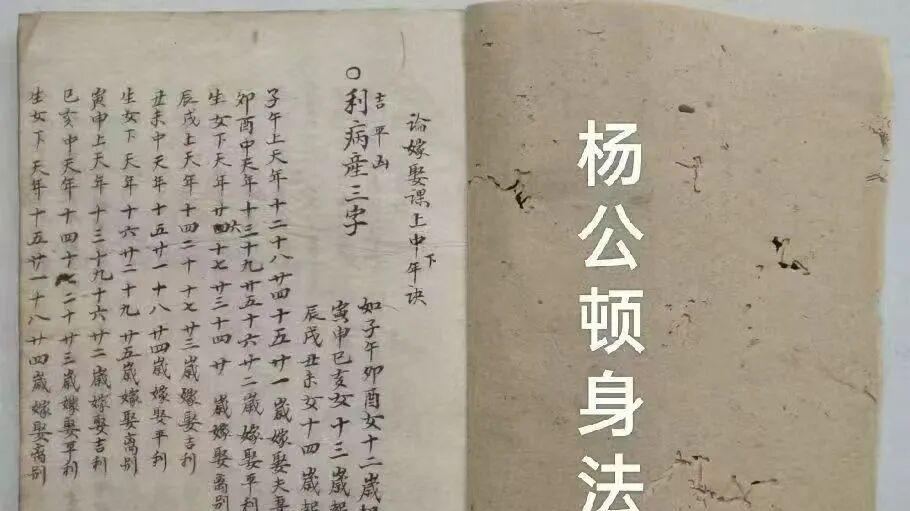 杨公顿身法
論嫁娶課上中下年訣
吉平凶
○利病産三字
如子午卯酉女十二歲
寅申巳亥女十三歲
辰戌丑未女十四歲
子午上天年十二十八廿四十五廿一歲嫁娶夫妻
卯酉中天年十三十九廿五十六廿二歲嫁娶平利
生女下天年廿六十七廿三十四廿歲嫁娶离別
辰戌上天年十四二十十七廿三歲嫁娶吉利
丑未中天年十五廿一十八廿四歲嫁娶平利
生女下天年十六廿二十九廿五歲嫁娶离別
寅申上天年十三十九十六廿二歲嫁娶吉利
巳亥中天年十四十七二十廿三歲嫁娶平利
生女下天年十五廿一十八廿四歲嫁娶离別